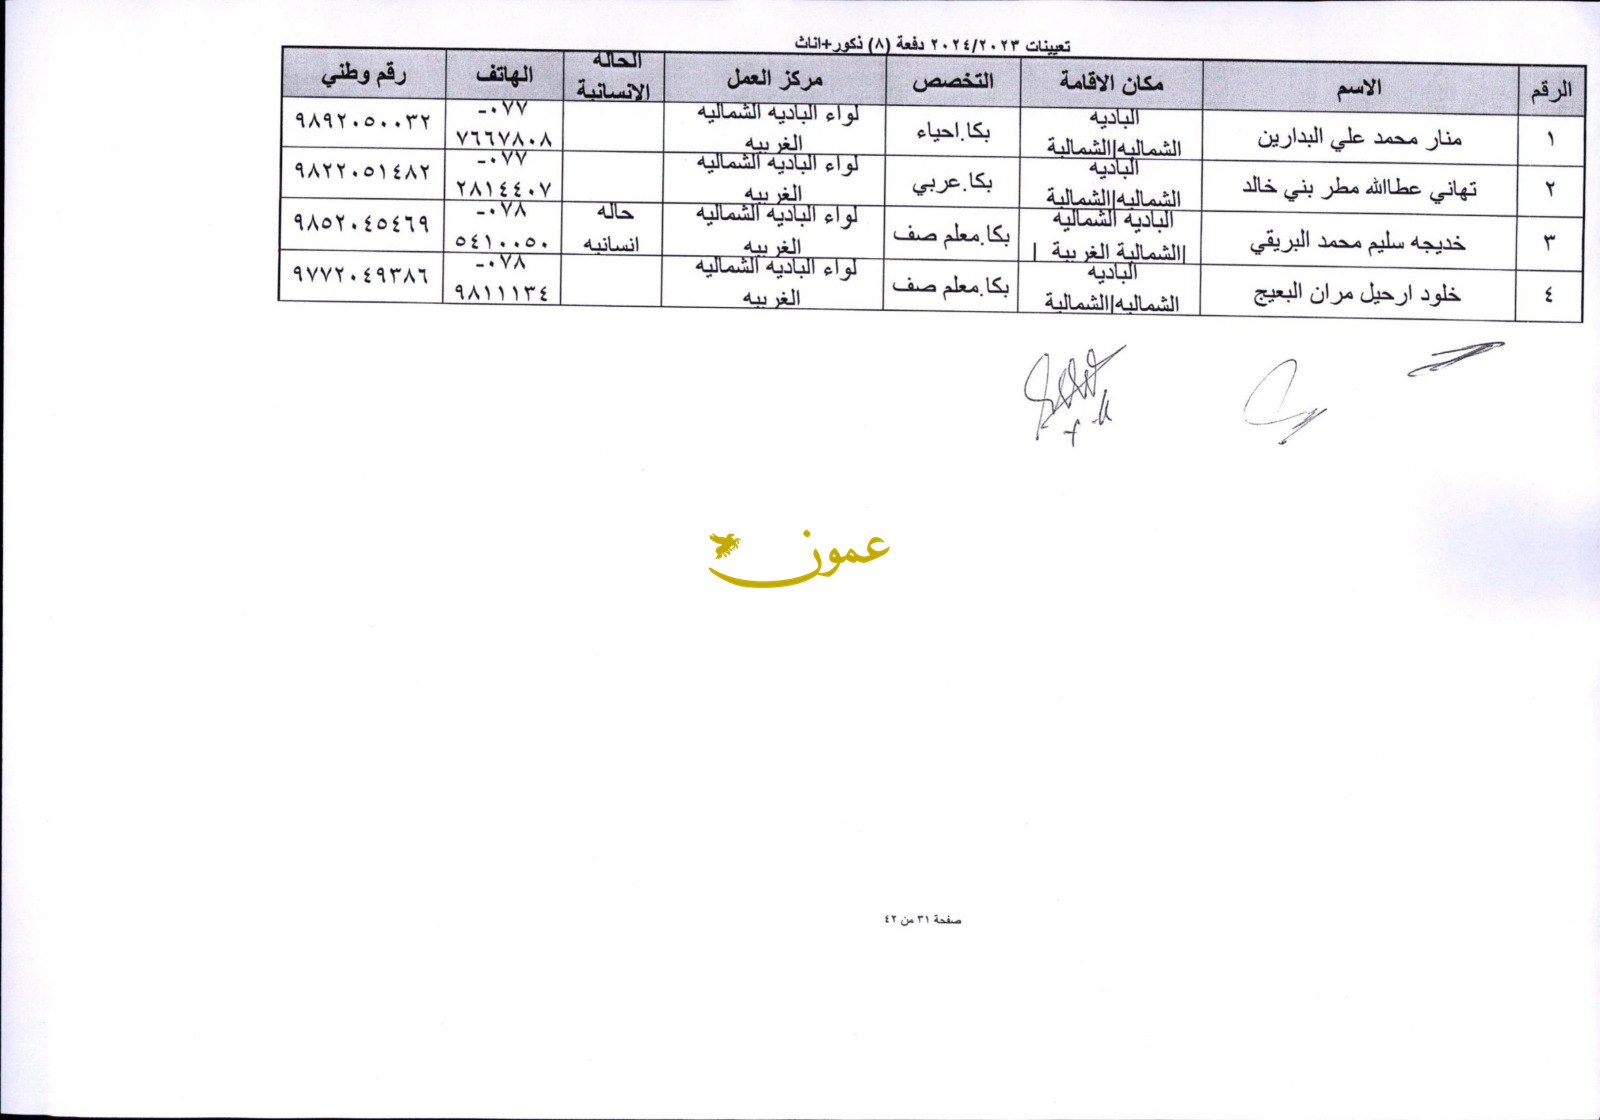 تعيينات ٢٠٢٤/٢٠٢٣ دفعة (٨) ذكور+اناث
الرقم الاسم مكان الاقامة التخصص مركز العمل الحاله الانسانية الهاتف رقم وطني
١ منار محمد علي البدارين الباديه الشماليه|الشمالية بكا.احياء لواء الباديه الشماليه الغربيه ٠٧٧-٧٦٦٧٨٠٨ ٩٨٩٢٠٥٠٠٣٢
٢ تهاني عطاالله مطر بني خالد الباديه الشماليه|الشمالية بكا.عربي لواء الباديه الشماليه الغربيه ٠٧٧-٢٨١٤٤٠٧ ٩٨٢٢٠٥١٤٨٢
٣ خديجه سليم محمد البريقي الباديه الشماليه |الشمالية الغربية | بكا.معلم صف لواء الباديه الشماليه الغربيه حاله انسانيه ٠٧٨-٥٤١٠٠٥٠ ٩٨٥٢٠٤٥٤٦٩
٤ خلود ارحيل مران البعيج الباديه الشماليه|الشمالية بكا.معلم صف لواء الباديه الشماليه الغربيه ٠٧٨-٩٨١١١٣٤ ٩٧٧٢٠٤٩٣٨٦
عمون
صفحة ٣١ من ٤٢